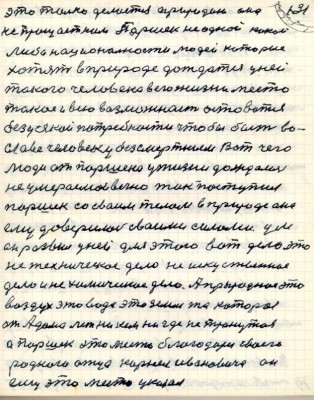 31
это только делается природою она
не прощает ним Паршек не одной какой
либо национальности людей которые
хотят в природе дождатся у ней
такого человека в его жизни место
такое и в его возможность остоватся
безусякой потребности чтобы быть во-
славе человеку бессмертним Вот чего
люди от паршека у жизни дождали
не умераемо вечно так поступил
паршек со своим телом в природе она
ему доверилась своими силами ум
он развил у ней для этого вот дело это
не техническое дело не искуственное
дело и не химическое дело. А природное это
воздух это вода это земля та которая
от Адама лет никем нигде не тронутая
а паршек это место благодаря своего
родного отца корнея ивановича он
ему это место указал